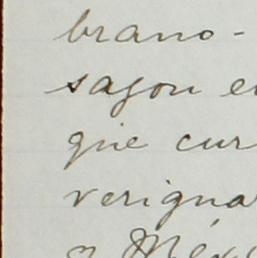 brano-
sagon en
que cur
verigua
y Méx